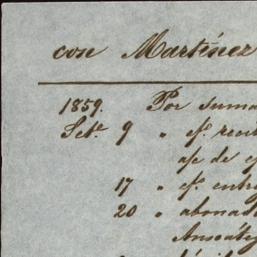 con Martinez
1859. Por suma
Sete. 9 " ef. recib
a/c de c
17 " ef. entre
20 " abonad
Ansoáteg